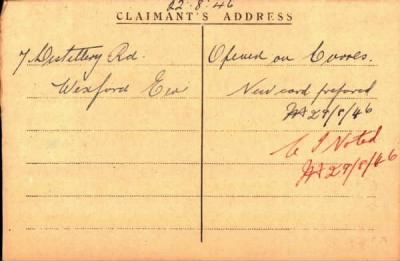 22·8·46
CLAIMANT'S ADDRESS
7 Distillery Rd.
Wexford Eire
Opened on Corres.
New card prepared
29/8/46
C I Noted
29/8/46